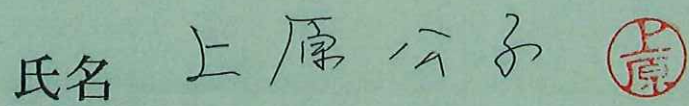 氏名 上原公子 上原